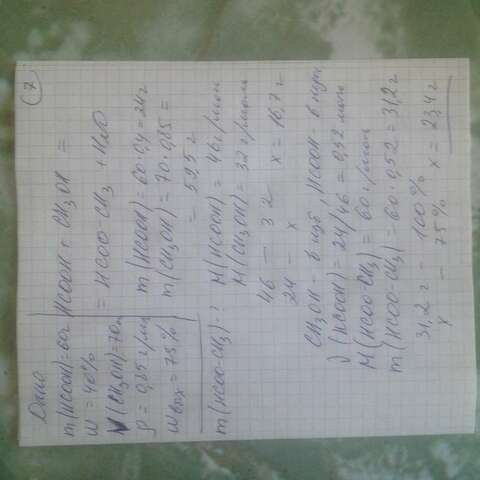 7
Дано
m(HCOOH)=60г
W=40%
V(CH3OH)=70м
ρ=0,85г/мл
Wвых=75%
m(HCOO-CH3)-?
HCOOH+CH3OH =
= HCOO-CH3 + H2O
m(HCOOH)=60·0,4=24г
m(CH3OH)=70·0,85=
= 59,5г
M(HCOOH)=46г/моль
M(CH3OH)=32г/моль
46 – 32
24 – x x=16,7г
CH3OH – в изб, HCOOH – в недм
ν(HCOOH)=24/46=0,52 моль
M(HCOOCH3)=60г/моль
m(HCOO-CH3)=60·0,52=31,2г
31,2г – 100%
x – 75% x=23,4г